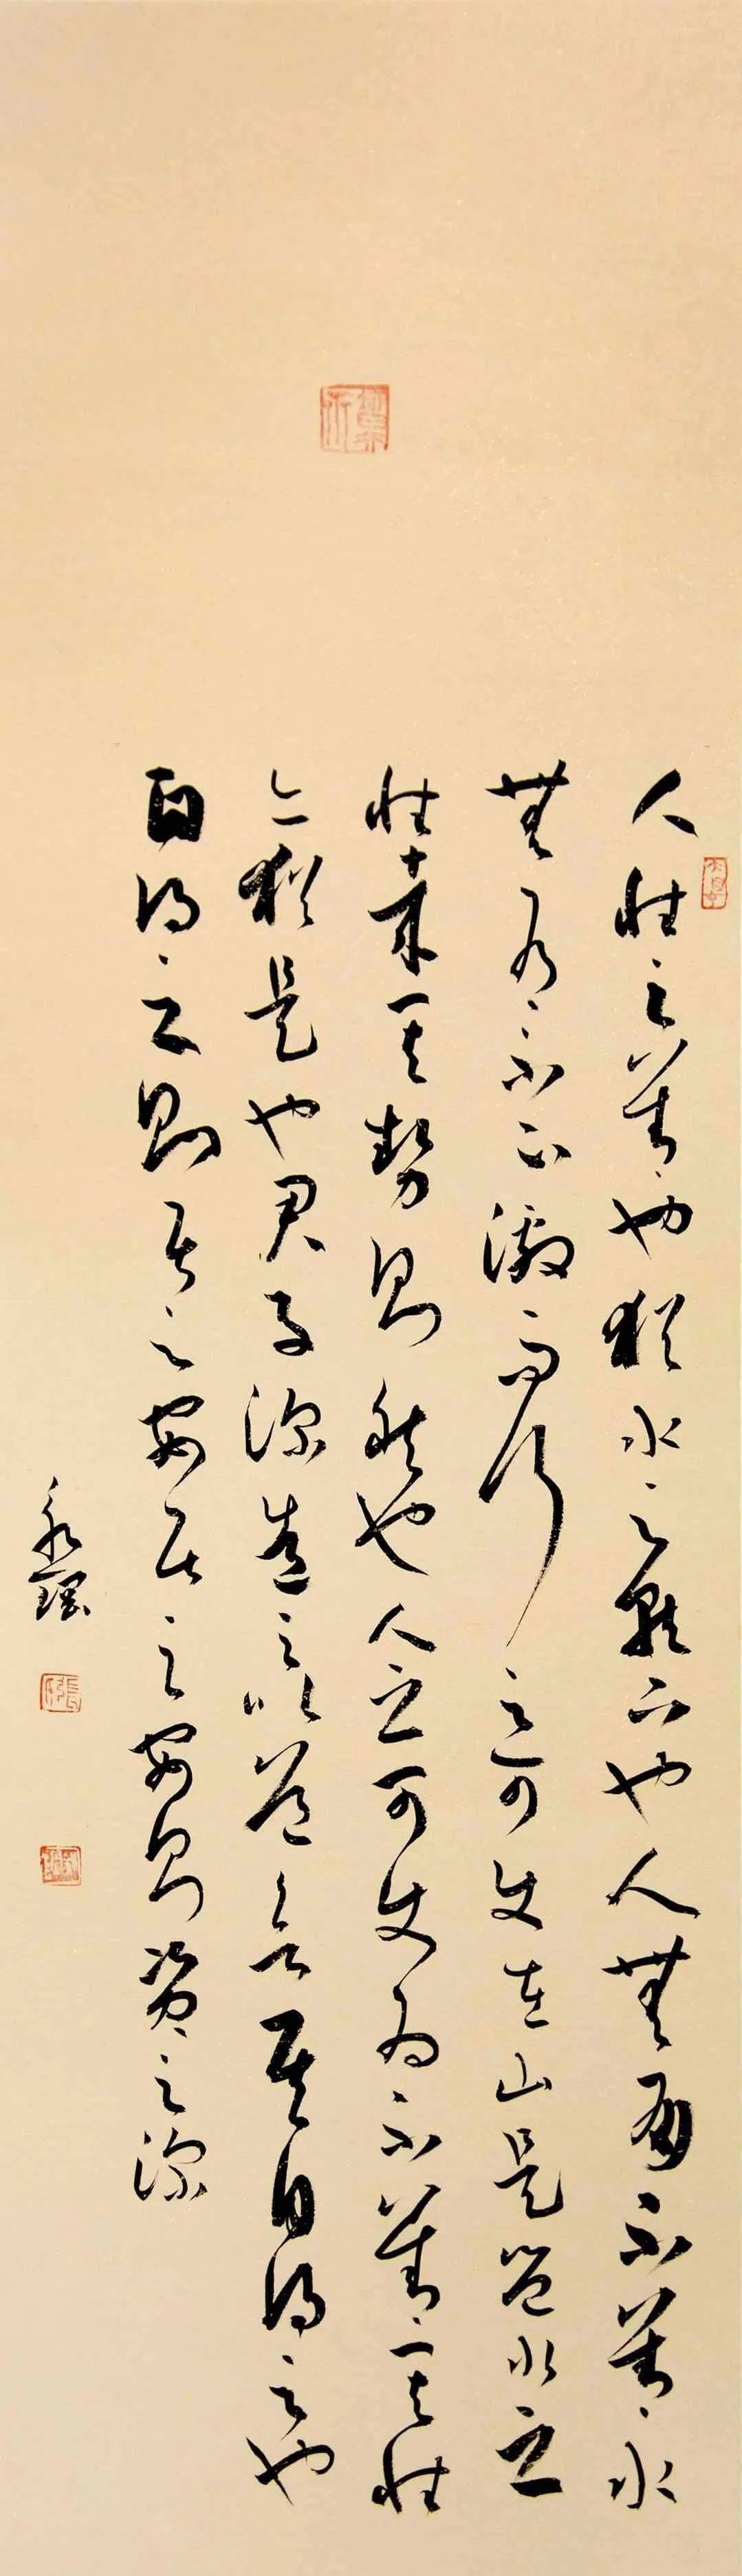 人性之善也猶水之就下也人無有不善水
無有不下激而行之可使在山是豈水之
性哉其勢則然也人之可使為不善其性
亦猶是也君子深造之以道欲其自得之也
自得之則居之安居之安則資之深